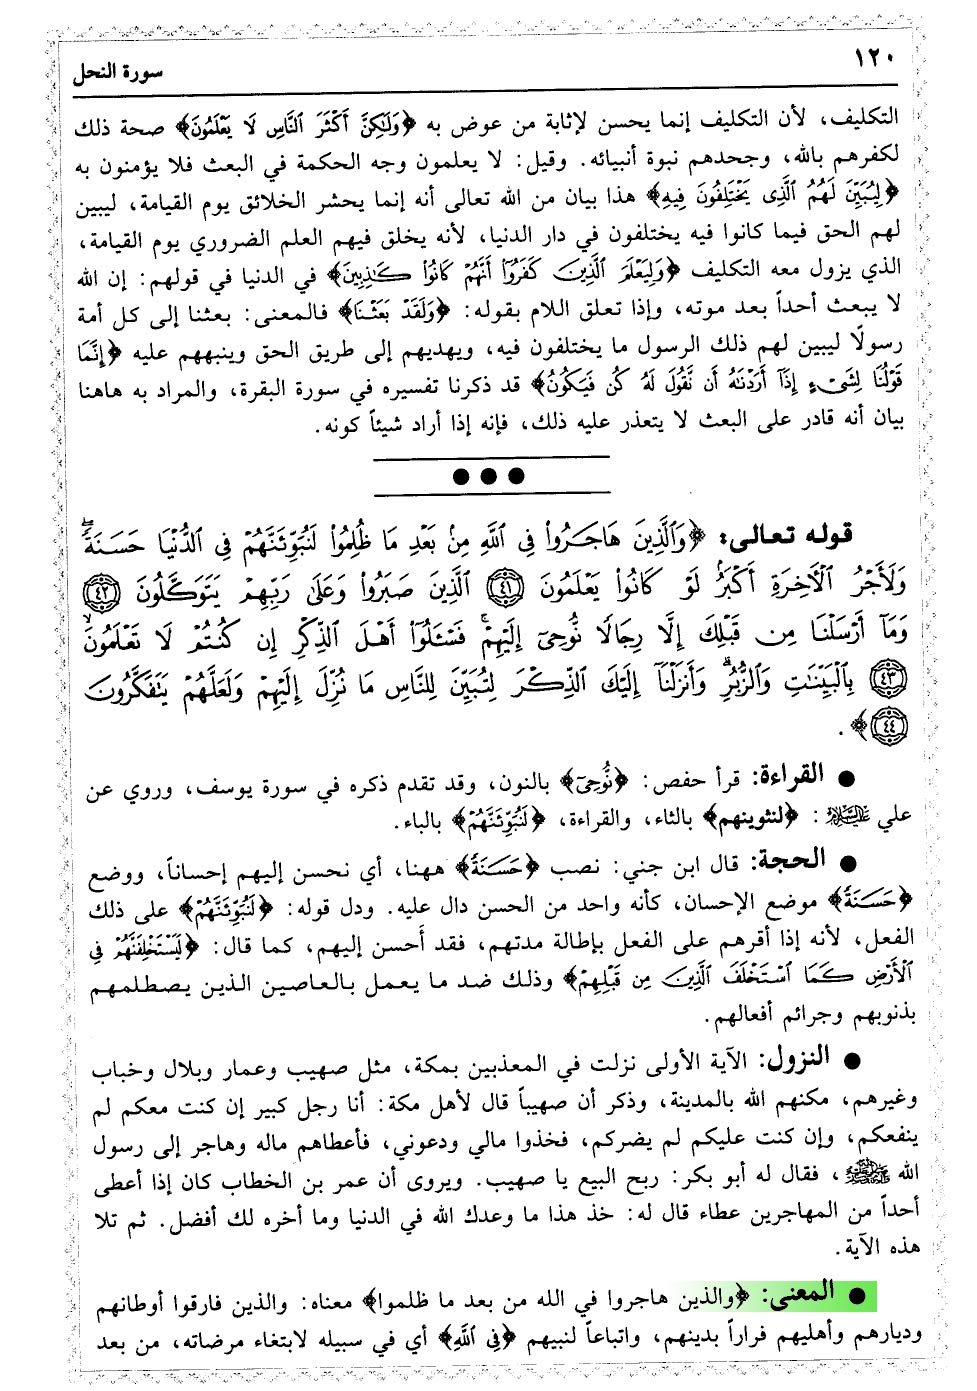 ١٢٠
سورة النحل
التكليف، لأن التكليف إنما يحسن لإثابة من عوض به ﴿وَلَٰكِنَّ أَكْثَرَ ٱلنَّاسِ لَا يَعْلَمُونَ﴾ صحة ذلك
لكفرهم بالله، وجحدهم نبوة أنبيائه. وقيل: لا يعلمون وجه الحكمة في البعث فلا يؤمنون به
﴿لِيُبَيِّنَ لَهُمُ ٱلَّذِى يَخْتَلِفُونَ فِيهِ﴾ هذا بيان من الله تعالى أنه إنما يحشر الخلائق يوم القيامة، ليبين
لهم الحق فيما كانوا فيه يختلفون في دار الدنيا، لأنه يخلق فيهم العلم الضروري يوم القيامة،
الذي يزول معه التكليف ﴿وَلِيَعْلَمَ ٱلَّذِينَ كَفَرُوٓا۟ أَنَّهُمْ كَانُوا۟ كَٰذِبِينَ﴾ في الدنيا في قولهم: إن الله
لا يبعث أحداً بعد موته، وإذا تعلق اللام بقوله: ﴿وَلَقَدْ بَعَثْنَا﴾ فالمعنى: بعثنا إلى كل أمة
رسولًا ليبين لهم ذلك الرسول ما يختلفون فيه، ويهديهم إلى طريق الحق وينبههم عليه ﴿إِنَّمَا
قَوْلُنَا لِشَىْءٍ إِذَآ أَرَدْنَٰهُ أَن نَّقُولَ لَهُۥ كُن فَيَكُونُ﴾ قد ذكرنا تفسيره في سورة البقرة، والمراد به هاهنا
بيان أنه قادر على البعث لا يتعذر عليه ذلك، فإنه إذا أراد شيئاً كونه.
قوله تعالى: ﴿وَٱلَّذِينَ هَاجَرُوا۟ فِى ٱللَّهِ مِنۢ بَعْدِ مَا ظُلِمُوا۟ لَنُبَوِّئَنَّهُمْ فِى ٱلدُّنْيَا حَسَنَةً ۖ
وَلَأَجْرُ ٱلْءَاخِرَةِ أَكْبَرُ ۚ لَوْ كَانُوا۟ يَعْلَمُونَ ٤١ ٱلَّذِينَ صَبَرُوا۟ وَعَلَىٰ رَبِّهِمْ يَتَوَكَّلُونَ ٤٢
وَمَآ أَرْسَلْنَا مِن قَبْلِكَ إِلَّا رِجَالًا نُّوحِىٓ إِلَيْهِمْ ۚ فَسْـَٔلُوٓا۟ أَهْلَ ٱلذِّكْرِ إِن كُنتُمْ لَا تَعْلَمُونَ
٤٣ بِٱلْبَيِّنَٰتِ وَٱلزُّبُرِ ۗ وَأَنزَلْنَآ إِلَيْكَ ٱلذِّكْرَ لِتُبَيِّنَ لِلنَّاسِ مَا نُزِّلَ إِلَيْهِمْ وَلَعَلَّهُمْ يَتَفَكَّرُونَ
٤٤﴾.
● القراءة: قرأ حفص: ﴿نُّوحِىٓ﴾ بالنون، وقد تقدم ذكره في سورة يوسف، وروي عن
علي عليه السلام: ﴿لنثوينهم﴾ بالثاء، والقراءة، ﴿لَنُبَوِّئَنَّهُمْ﴾ بالباء.
● الحجة: قال ابن جني: نصب ﴿حَسَنَةً﴾ ههنا، أي نحسن إليهم إحساناً، ووضع
﴿حَسَنَةً﴾ موضع الإحسان، كأنه واحد من الحسن دال عليه. ودل قوله: ﴿لَنُبَوِّئَنَّهُمْ﴾ على ذلك
الفعل، لأنه إذا أقرهم على الفعل بإطالة مدتهم، فقد أَحسن إليهم، كما قال: ﴿لَيَسْتَخْلِفَنَّهُمْ فِى
ٱلْأَرْضِ كَمَا ٱسْتَخْلَفَ ٱلَّذِينَ مِن قَبْلِهِمْ﴾ وذلك ضد ما يعمل بالعاصين الذين يصطلمهم
بذنوبهم وجرائم أفعالهم.
● النزول: الآية الأولى نزلت في المعذبين بمكة، مثل صهيب وعمار وبلال وخباب
وغيرهم، مكنهم الله بالمدينة، وذكر أن صهيباً قال لأهل مكة: أنا رجل كبير إن كنت معكم لم
ينفعكم، وإن كنت عليكم لم يضركم، فخذوا مالي ودعوني، فأعطاهم ماله وهاجر إلى رسول
الله ﷺ، فقال له أبو بكر: ربح البيع يا صهيب. ويروى أن عمر بن الخطاب كان إذا أعطى
أحداً من المهاجرين عطاء قال له: خذ هذا ما وعدك الله في الدنيا وما أخره لك أفضل. ثم تلا
هذه الآية.
● المعنى: ﴿والذين هاجروا في الله من بعد ما ظلموا﴾ معناه: والذين فارقوا أوطانهم
وديارهم وأهليهم فراراً بدينهم، واتباعاً لنبيهم ﴿فِى ٱللَّهِ﴾ أي في سبيله لابتغاء مرضاته، من بعد